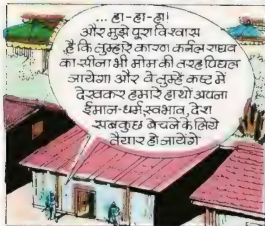 ... हा-हा-हा!
और मुझे पूरा विश्वास
है कि तुम्हारे कारण कर्नल राघव
का सीना भी मोम की तरह पिघल
जायेगा और वे तुम्हें कष्ट में
देखकर हमारे हाथों अपना
ईमान-धर्म,स्वभान, देश
सबकुछ बेचने के लिये
तैयार हो जायेंगे